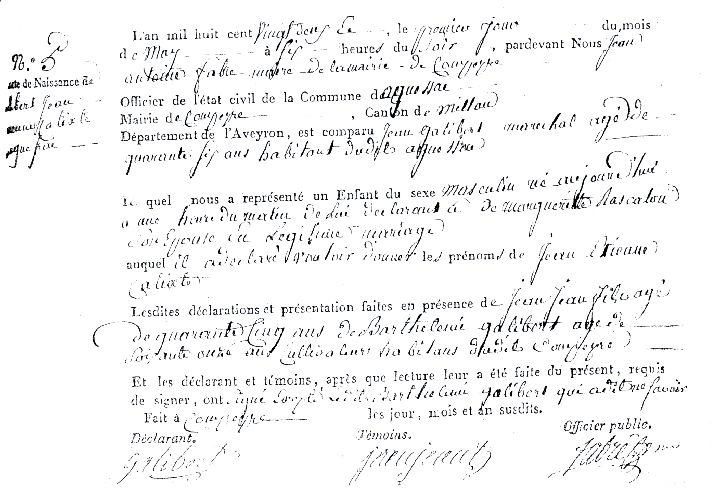 L'an mil huit cent vingt deux Le, le premier jour du mois
de May à six heures du Soir, pardevant Nous Jean
antoine fabre maire de la mairie de Compeyre
N.° 5
de Naissance de
Officier de l'état civil de la Commune d'aguessac
Mairie de Compeyre, Canton de Millau
Département de l'Aveyron, est comparu Jean galibert marechal agé de
quarante six ans habitant dudit aguessac
Le quel nous a représenté un Enfant du sexe masculin né aujourd'hui
a une heure du matin de lui declarant & De marguerite Rascalou
Son Epouse en Legitime mariage
auquel il a declaré vouloir donner les prénoms de Jean Etienne
Calixte
Lesdites déclarations et présentation faites en présence de Jean Jean fils agé
de quarante Cinq ans de Barthelemi galibert age de
Soixante onze ans Cultivateurs habitans dudit Compeyre
Et les déclarant et témoins, après que lecture leur a été faite du présent, requis
de signer, ont signé ledit Barthelemi galibert qui a dit ne Savoir
Fait à Compeyre les jour, mois et an susdits.
Déclarant. Témoins. Officier public.
Galibert jeanjean fabre